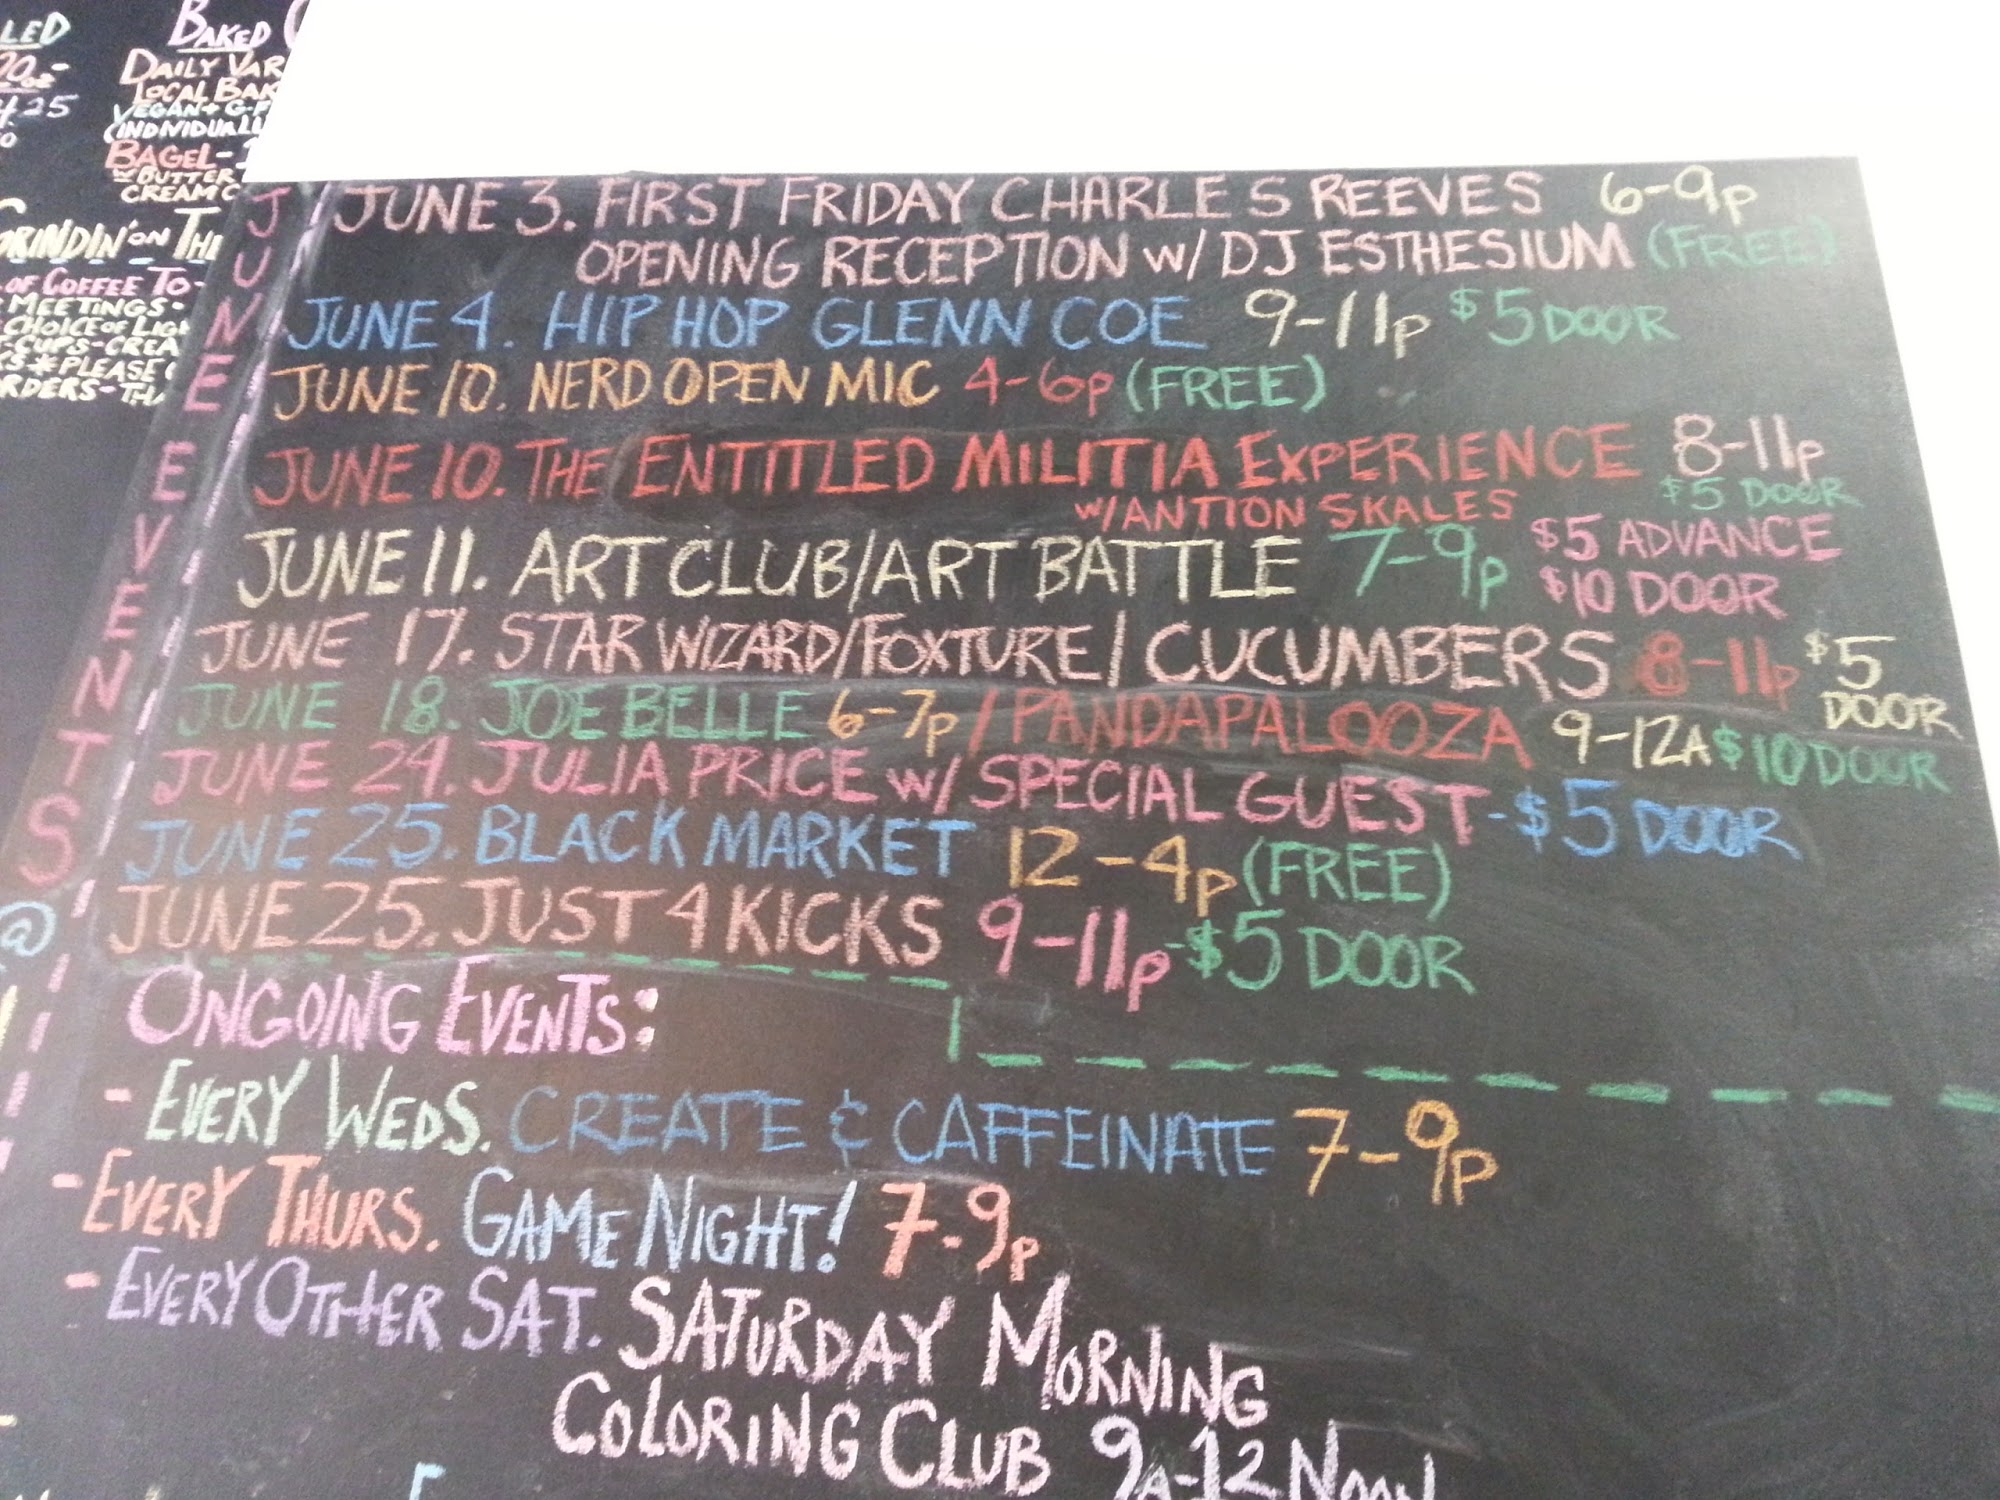 LED
BAKED
20oz-
DAILY VAR
LOCAL BAK
4.25
VEGAN + G-F
(INDIVIDUALL
BAGEL-
W/ BUTTER
CREAM C
GRINDIN' ON THE
OF COFFEE TO-
MEETINGS-
CHOICE OF LIGH
CUPS-CREA
* PLEASE
RDERS-THA
JUNE EVENTS
@
JUNE 3. FIRST FRIDAY CHARLES REEVES 6-9p
OPENING RECEPTION W/ DJ ESTHESIUM (FREE)
JUNE 4. HIP HOP GLENN COE 9-11p $5 DOOR
JUNE 10. NERD OPEN MIC 4-6p (FREE)
JUNE 10. THE ENTITLED MILITIA EXPERIENCE 8-11p
W/ANTION SKALES $5 DOOR
JUNE 11. ART CLUB/ART BATTLE 7-9p $5 ADVANCE
$10 DOOR
JUNE 17. STAR WIZARD/FOXTURE/CUCUMBERS 8-11p $5
DOOR
JUNE 18. JOE BELLE 6-7p / PANDAPALOOZA 9-12A $10 DOOR
JUNE 24. JULIA PRICE W/ SPECIAL GUEST-$5 DOOR
JUNE 25. BLACK MARKET 12-4p (FREE)
JUNE 25. JUST 4 KICKS 9-11p-$5 DOOR
ONGOING EVENTS:
- EVERY WEDS. CREATE & CAFFEINATE 7-9p
- EVERY THURS. GAME NIGHT! 7-9p
- EVERY OTHER SAT. SATURDAY MORNING
COLORING CLUB 9A-12 NOON